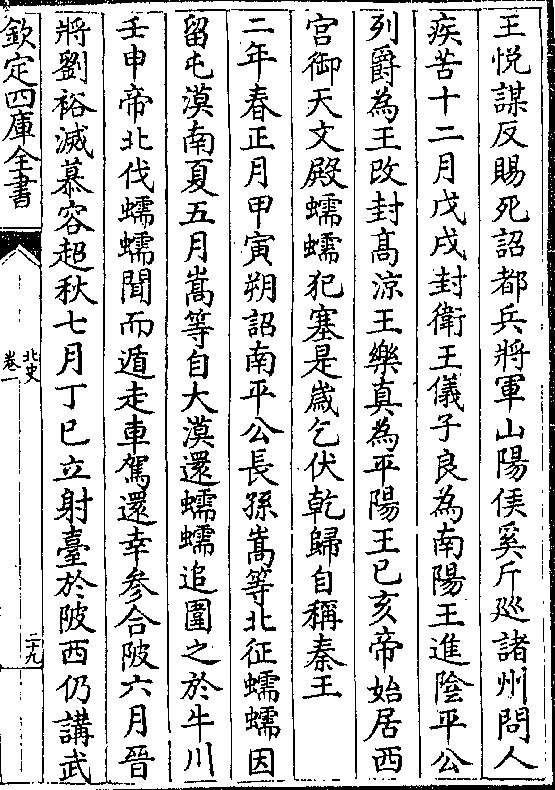 王悅謀反賜死詔都兵將軍山陽侯奚斤廵諸州問人
疾苦十二月戊戌封衛王儀子良為南陽王進陰平公
列爵為王改封髙涼王樂真為平陽王己亥帝始居西
宫御天文殿蠕蠕犯塞是歲乞伏乾歸自稱秦王
二年春正月甲寅朔詔南平公長孫嵩等北征蠕蠕因
留屯漠南夏五月嵩等自大漠還蠕蠕追圍之於牛川
壬申帝北伐蠕蠕聞而遁走車駕還幸參合陂六月晉
將劉裕滅慕容超秋七月丁巳立射臺於陂西仍講武
欽定四庫全書
北史
卷一
二十九